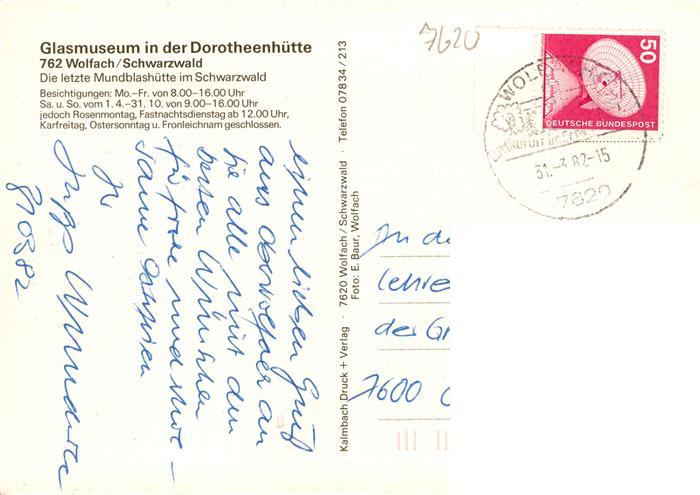 Glasmuseum in der Dorotheenhütte
762 Wolfach/Schwarzwald
Die letzte Mundblashütte im Schwarzwald
Besichtigungen: Mo.–Fr. von 8.00–16.00 Uhr
Sa. u. So. vom 1. 4.–31. 10. von 9.00–16.00 Uhr
jedoch Rosenmontag, Fastnachtsdienstag ab 12.00 Uhr,
Karfreitag, Ostersonntag u. Fronleichnam geschlossen.
7620
50
DEUTSCHE BUNDESPOST
31.-3.82-15
7620
einen lieben Gruß
aus Oberwolfach an
Sie alle mit den
besten Wünschen
für frohe und
Ihr
810382
Kalmbach Druck + Verlag · 7620 Wolfach/Schwarzwald · Telefon 07834/213
Foto: E. Baur, Wolfach
An d
Lehre
der G
7600